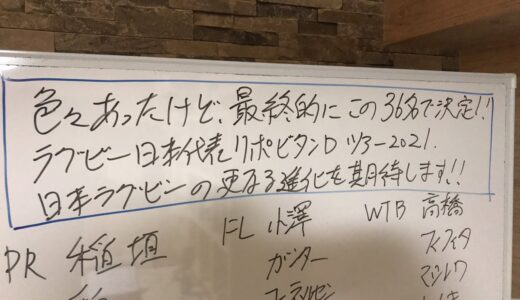 色々あったけど、最終的にこの36名で決定!!
ラグビー日本代表リポビタンDツアー2021.
日本ラグビーの更なる進化を期待します!!
PR 稲垣
FL 小澤
ガンター
WTB 高橋
フィフィタ
マシレワ